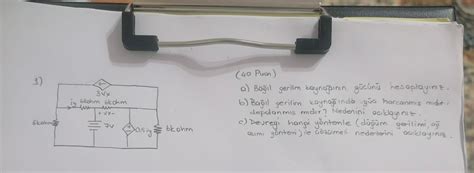 3)
3Vx
ix 6kohm 6kohm
+ vx -
6kohm
7V
0.5iy
6kohm
(40 Puan)
a) Bağıl gerilim kaynağının gücünü hesaplayınız.
b) Bağıl gerilim kaynağında güç harcanmış mıdır
depolanmış mıdır? Nedenini açıklayınız.
c) Devreyi hangi yöntemle (düğüm gerilimi, ağ
akımı yöntemi) ile çözümei nedenlerini açıklayınız.